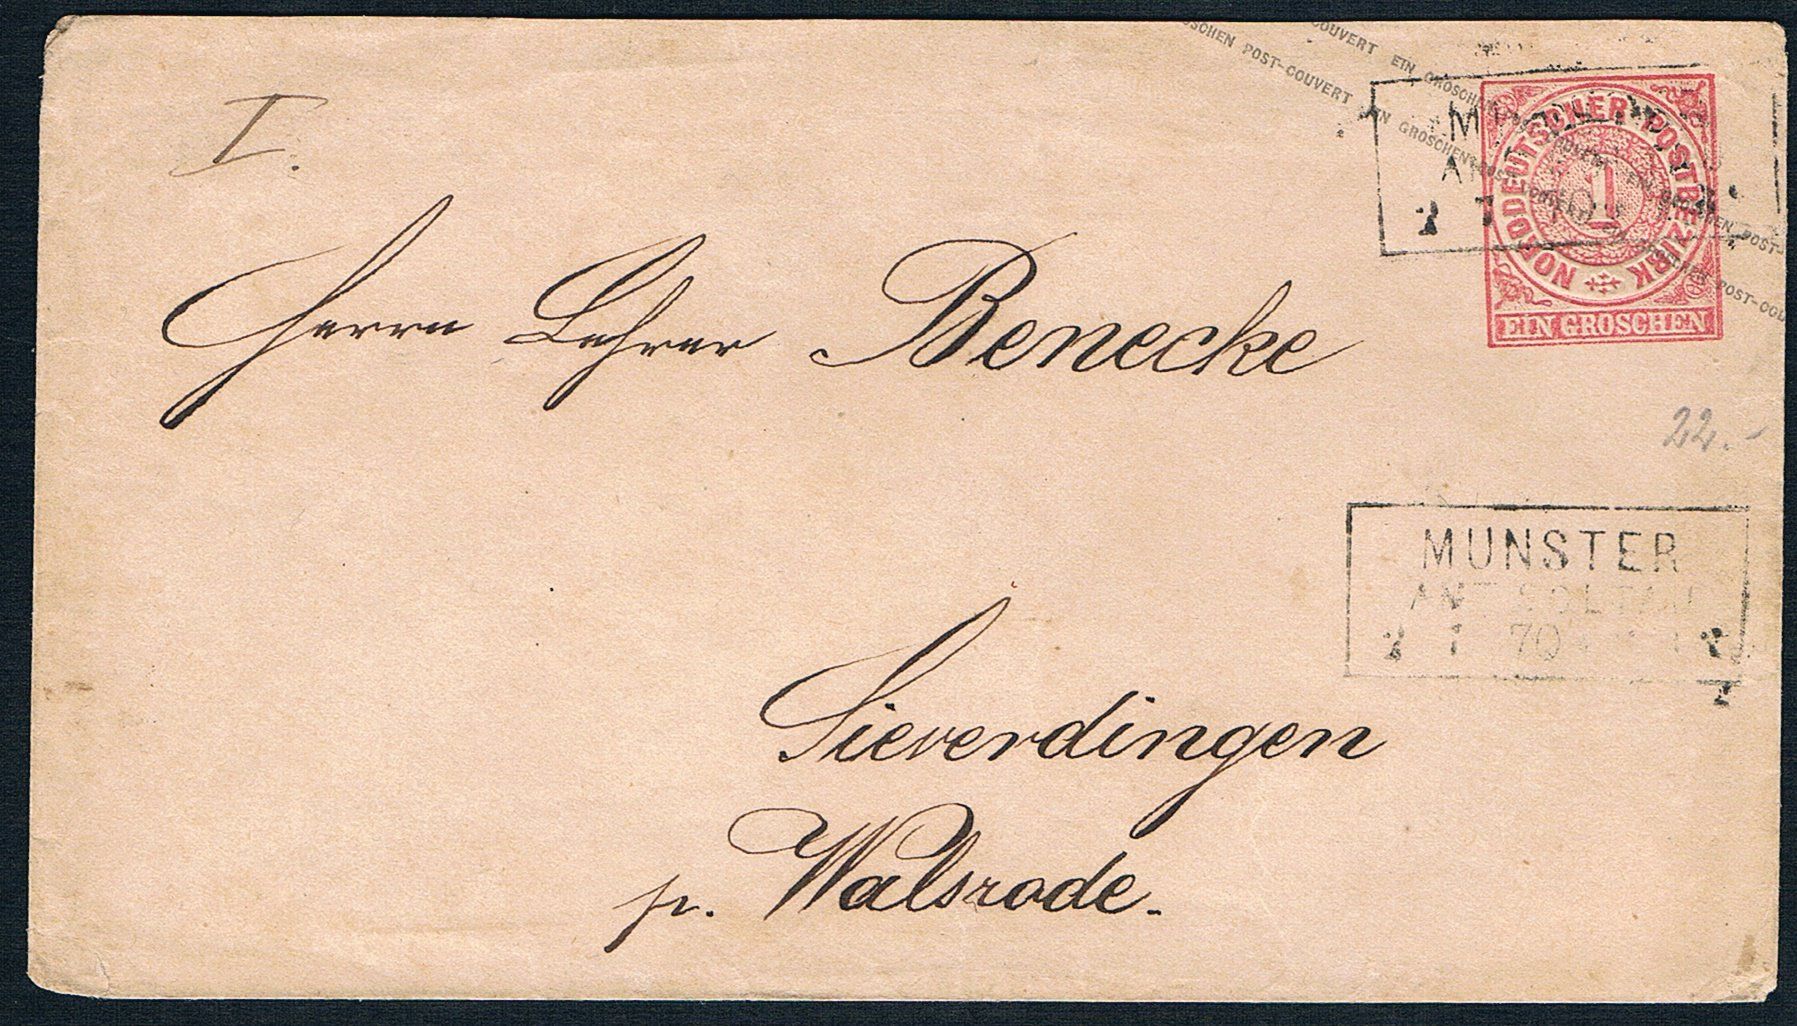 COUVERT EIN GROSCHEN POST-COUVERT EIN GROSCHEN POST-
GROSCHEN POST-COUVERT EIN GROSCHEN POST-COUVERT EIN GROSCHEN POST-COU
I.
NORDDEUTSCHER POSTBEZIRK
1
EIN GROSCHEN
Herrn Lehrer Benecke
22.-
MUNSTER
AMT SOLTAU
2 1 70
Sieverdingen
pr. Walsrode.